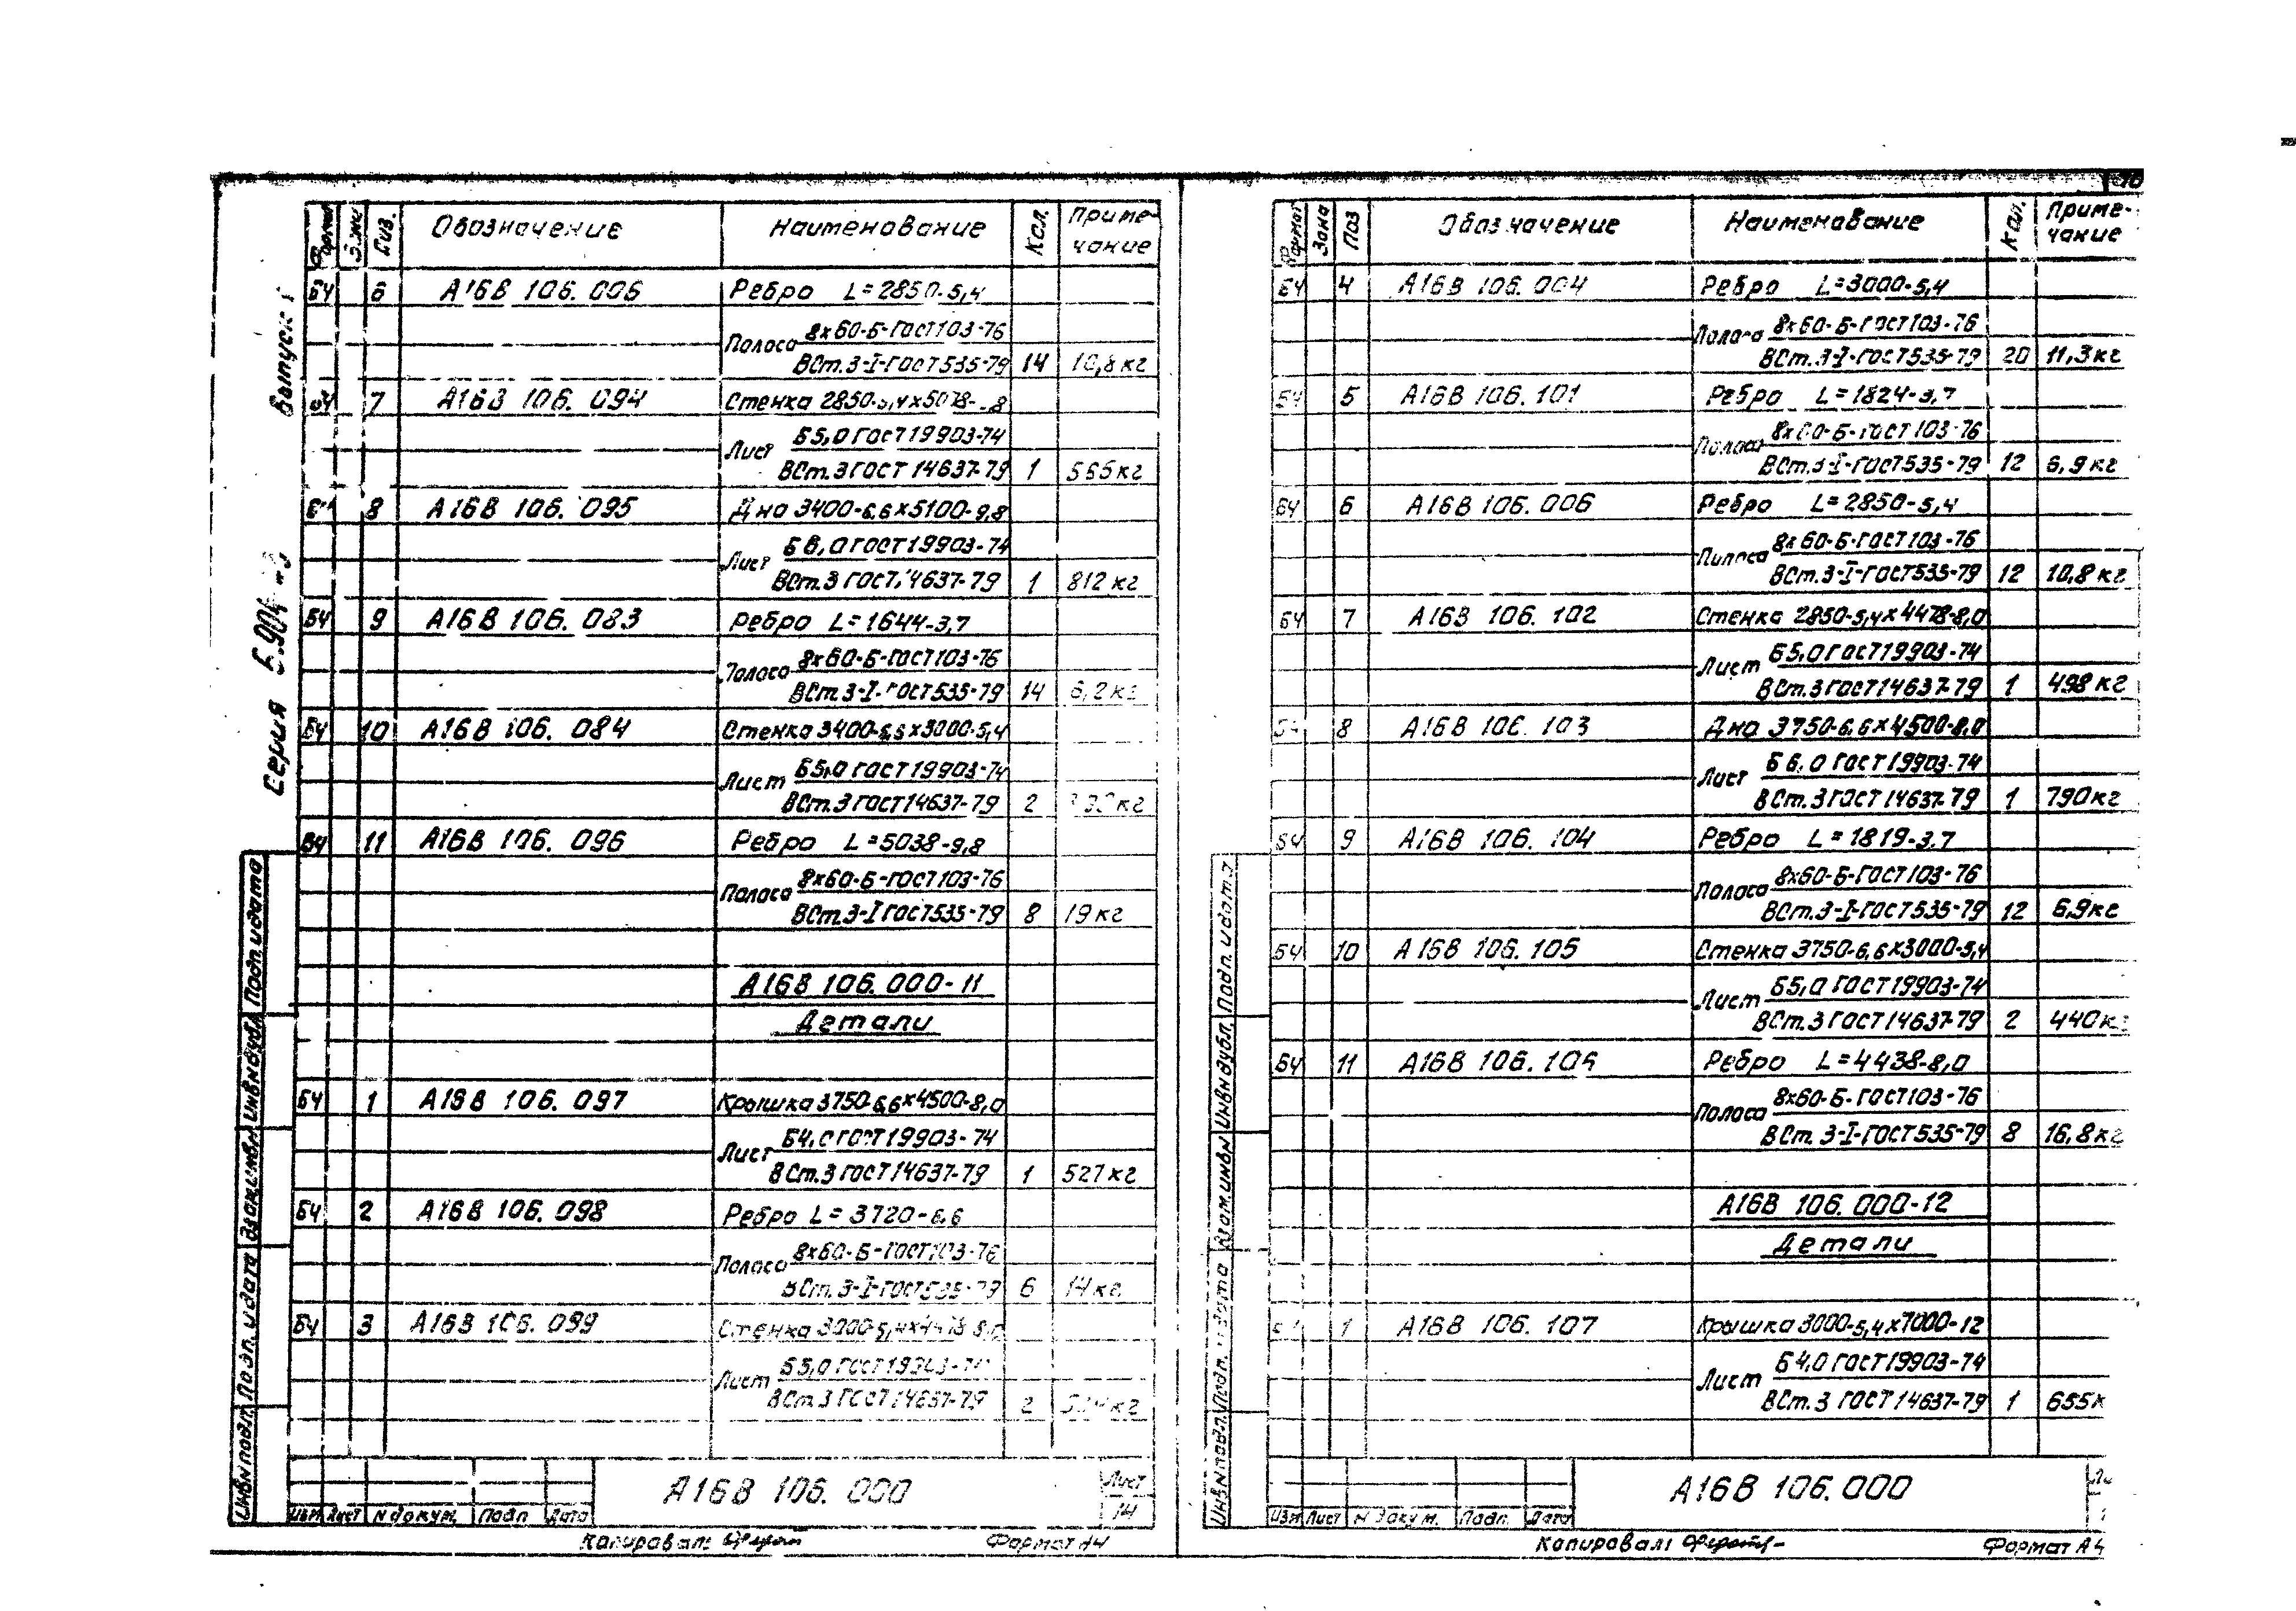 Выпуск 1
Серия 5.904-
Формат Зона Поз. Обозначение Наименование Кол. Приме-
чание
БЧ 6 А16В 106.006 Ребро L=2850-5,4
Полоса 8х60-Б-ГОСТ103-76
ВСт.3-I-ГОСТ535-79 14 10,8 кг
БЧ 7 А16В 106.094 Стенка 2850-5,4х5078-
Лист Б5,0 ГОСТ19903-74
ВСт.3 ГОСТ 14637-79 1 565 кг
8 А16В 106.095 Дно 3400-6,6х5100-9,8
Лист Б6,0 ГОСТ19903-74
ВСт.3 ГОСТ14637-79 1 812 кг
БЧ 9 А16В 106.083 Ребро L=1644-3,7
Полоса 8х60-Б-ГОСТ103-76
ВСт.3-I-ГОСТ535-79 14 6,2 кг
БЧ 10 А16В 106.084 Стенка 3400-6,6х3000-5,4
Лист Б5,0 ГОСТ19903-74
ВСт.3 ГОСТ14637-79 2 кг
БЧ 11 А16В 106.096 Ребро L=5038-9,8
Полоса 8х60-Б-ГОСТ103-76
ВСт.3-I ГОСТ535-79 8 19 кг
А16В 106.000-11
Детали
БЧ 1 А16В 106.097 Крышка 3750-6,6х4500-8,0
Лист Б4,0 ГОСТ19903-74
ВСт.3 ГОСТ14637-79 1 527 кг
БЧ 2 А16В 106.098 Ребро L=3720-6,6
Полоса 8х60-Б-ГОСТ103-76
ВСт.3-I-ГОСТ535-79 6 14 кг
БЧ 3 А16В 106.099 Стенка 3000-5,4х4478-8,0
Лист Б5,0 ГОСТ19903-74
ВСт.3 ГОСТ14637-79 2 кг
Инв.N подл. Подп. и дата Взам.инв.N Инв.N дубл. Подп. и дата
Изм Лист N докум. Подп Дата
А16В 106.000
Лист
14
Копировал:
Формат А4
Формат Зона Поз Обозначение Наименование Кол. Приме-
чание
БЧ 4 А16В 106.004 Ребро L=3000-5,4
Полоса 8х60-Б-ГОСТ103-76
ВСт.3-I-ГОСТ535-79 20 11,3 кг
БЧ 5 А16В 106.101 Ребро L=1824-3,7
Полоса 8х60-Б-ГОСТ103-76
ВСт.3-I-ГОСТ535-79 12 6,9 кг
БЧ 6 А16В 106.006 Ребро L=2850-5,4
Полоса 8х60-Б-ГОСТ103-76
ВСт.3-I-ГОСТ535-79 12 10,8 кг
БЧ 7 А16В 106.102 Стенка 2850-5,4х4478-8,0
Лист Б5,0 ГОСТ19903-74
ВСт.3 ГОСТ14637-79 1 498 кг
8 А16В 106.103 Дно 3750-6,6х4500-8,0
Лист Б6,0 ГОСТ19903-74
ВСт.3 ГОСТ14637-79 1 790 кг
БЧ 9 А16В 106.104 Ребро L=1819-3,7
Полоса 8х60-Б-ГОСТ103-76
ВСт.3-I-ГОСТ535-79 12 6,9 кг
БЧ 10 А16В 106.105 Стенка 3750-6,6х3000-5,4
Лист Б5,0 ГОСТ19903-74
ВСт.3 ГОСТ14637-79 2 440 кг
БЧ 11 А16В 106.106 Ребро L=4438-8,0
Полоса 8х60-Б-ГОСТ103-76
ВСт.3-I-ГОСТ535-79 8 16,8 кг
А16В 106.000-12
Детали
1 А16В 106.107 Крышка 3000-5,4х7000-12
Лист Б4,0 ГОСТ19903-74
ВСт.3 ГОСТ14637-79 1 655к
Инв.N подл. Подп. и дата Взам.инв.N Инв.N дубл. Подп. и дата
Изм Лист N докум. Подп. Дата
А16В 106.000
Копировал:
Формат А4